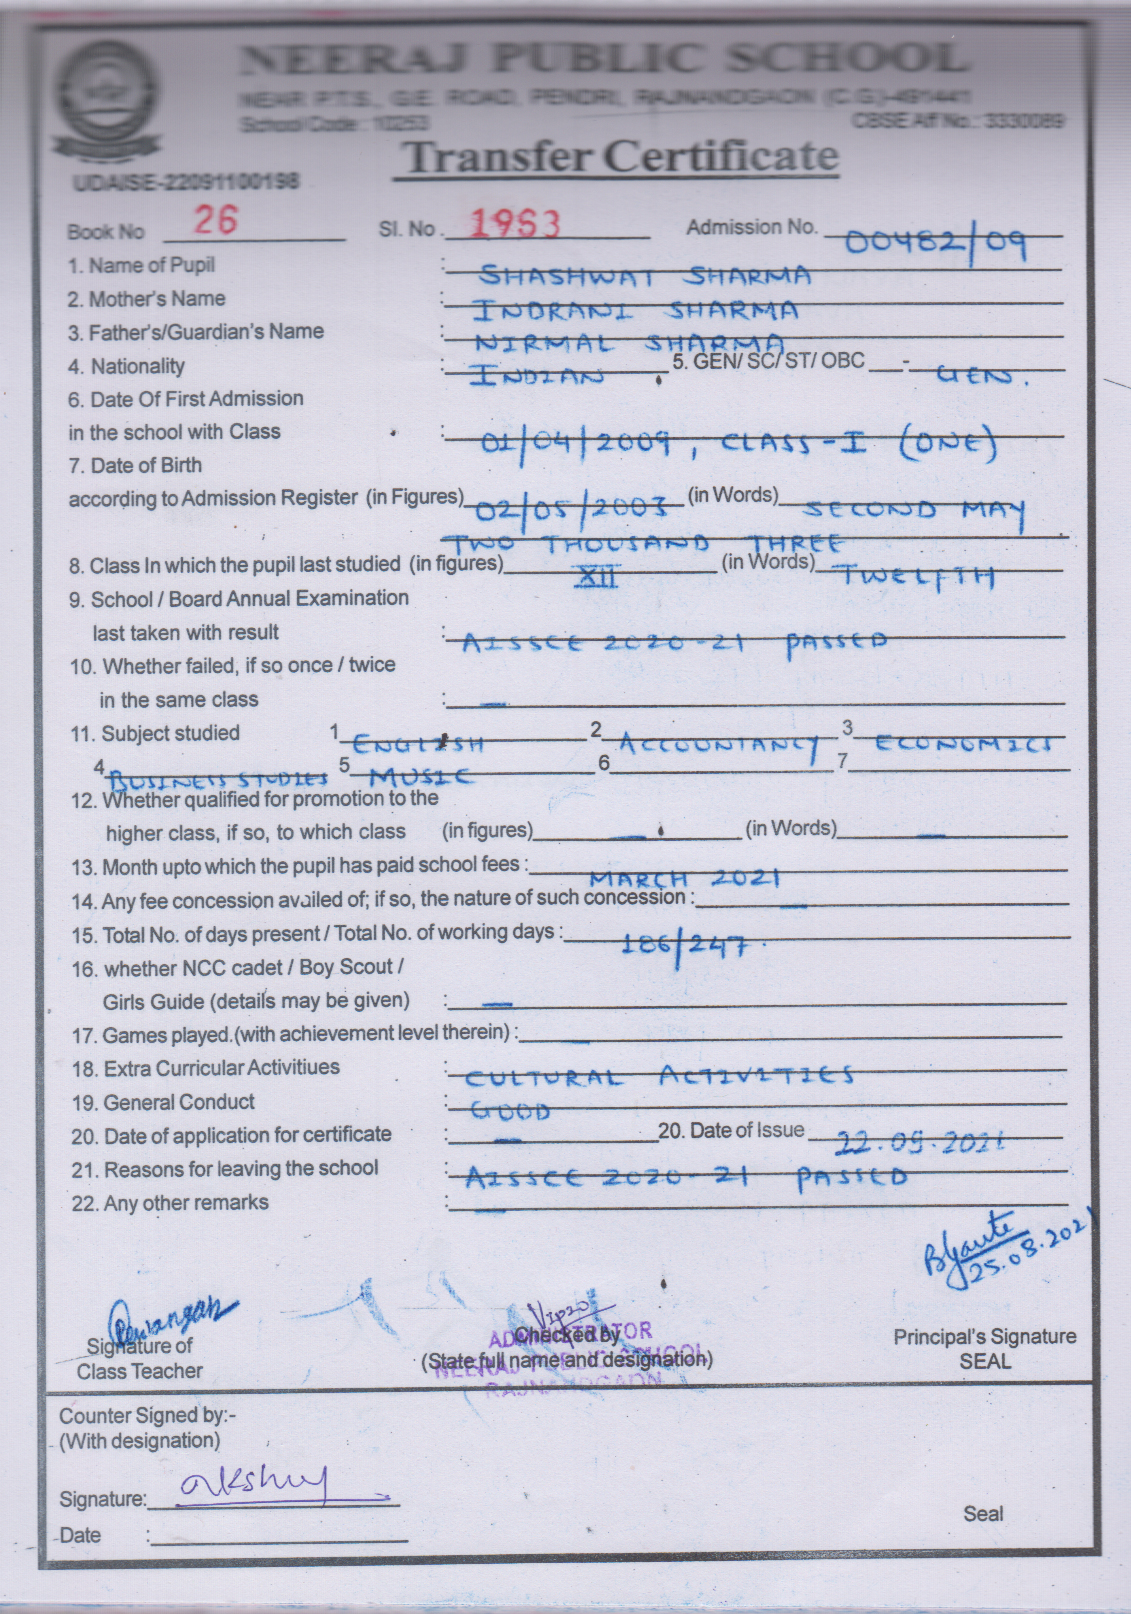 NEERAJ PUBLIC SCHOOL
NEAR P.T.S., G.E. ROAD, PENDRI, RAJNANDGAON (C.G.)-491441
School Code : 10253 CBSE Aff No.: 3330089
Transfer Certificate
UDAISE-22091100198
Book No 26 Sl. No. 1983 Admission No. 00482/09
1. Name of Pupil : SHASHWAT SHARMA
2. Mother's Name : INDRANI SHARMA
3. Father's/Guardian's Name : NIRMAL SHARMA
4. Nationality : INDIAN 5. GEN/ SC/ ST/ OBC - GEN.
6. Date Of First Admission
in the school with Class : 01/04/2009, CLASS-I (ONE)
7. Date of Birth
according to Admission Register (in Figures) 02/05/2003 (in Words) SECOND MAY
TWO THOUSAND THREE
8. Class In which the pupil last studied (in figures) XII (in Words) TWELFTH
9. School / Board Annual Examination
last taken with result : AISSCE 2020-21 PASSED
10. Whether failed, if so once / twice
in the same class : —
11. Subject studied 1 ENGLISH 2 ACCOUNTANCY 3 ECONOMICS
4 BUSINESS STUDIES 5 MUSIC 6 7
12. Whether qualified for promotion to the
higher class, if so, to which class (in figures) — (in Words) —
13. Month upto which the pupil has paid school fees : MARCH 2021
14. Any fee concession availed of; if so, the nature of such concession : —
15. Total No. of days present / Total No. of working days : 186/247.
16. whether NCC cadet / Boy Scout /
Girls Guide (details may be given) : —
17. Games played.(with achievement level therein) : —
18. Extra Curricular Activitiues : CULTURAL ACTIVITIES
19. General Conduct : GOOD
20. Date of application for certificate : — 20. Date of Issue 22.09.2021
21. Reasons for leaving the school : AISSCE 2020-21 PASSED
22. Any other remarks : —
25.08.2021
Signature of
Class Teacher
ADMINISTRATOR
NEERAJ PUBLIC SCHOOL
RAJNANDGAON
Checked by
(State full name and designation)
Principal's Signature
SEAL
Counter Signed by:-
(With designation)
Signature: akshay
Seal
Date :